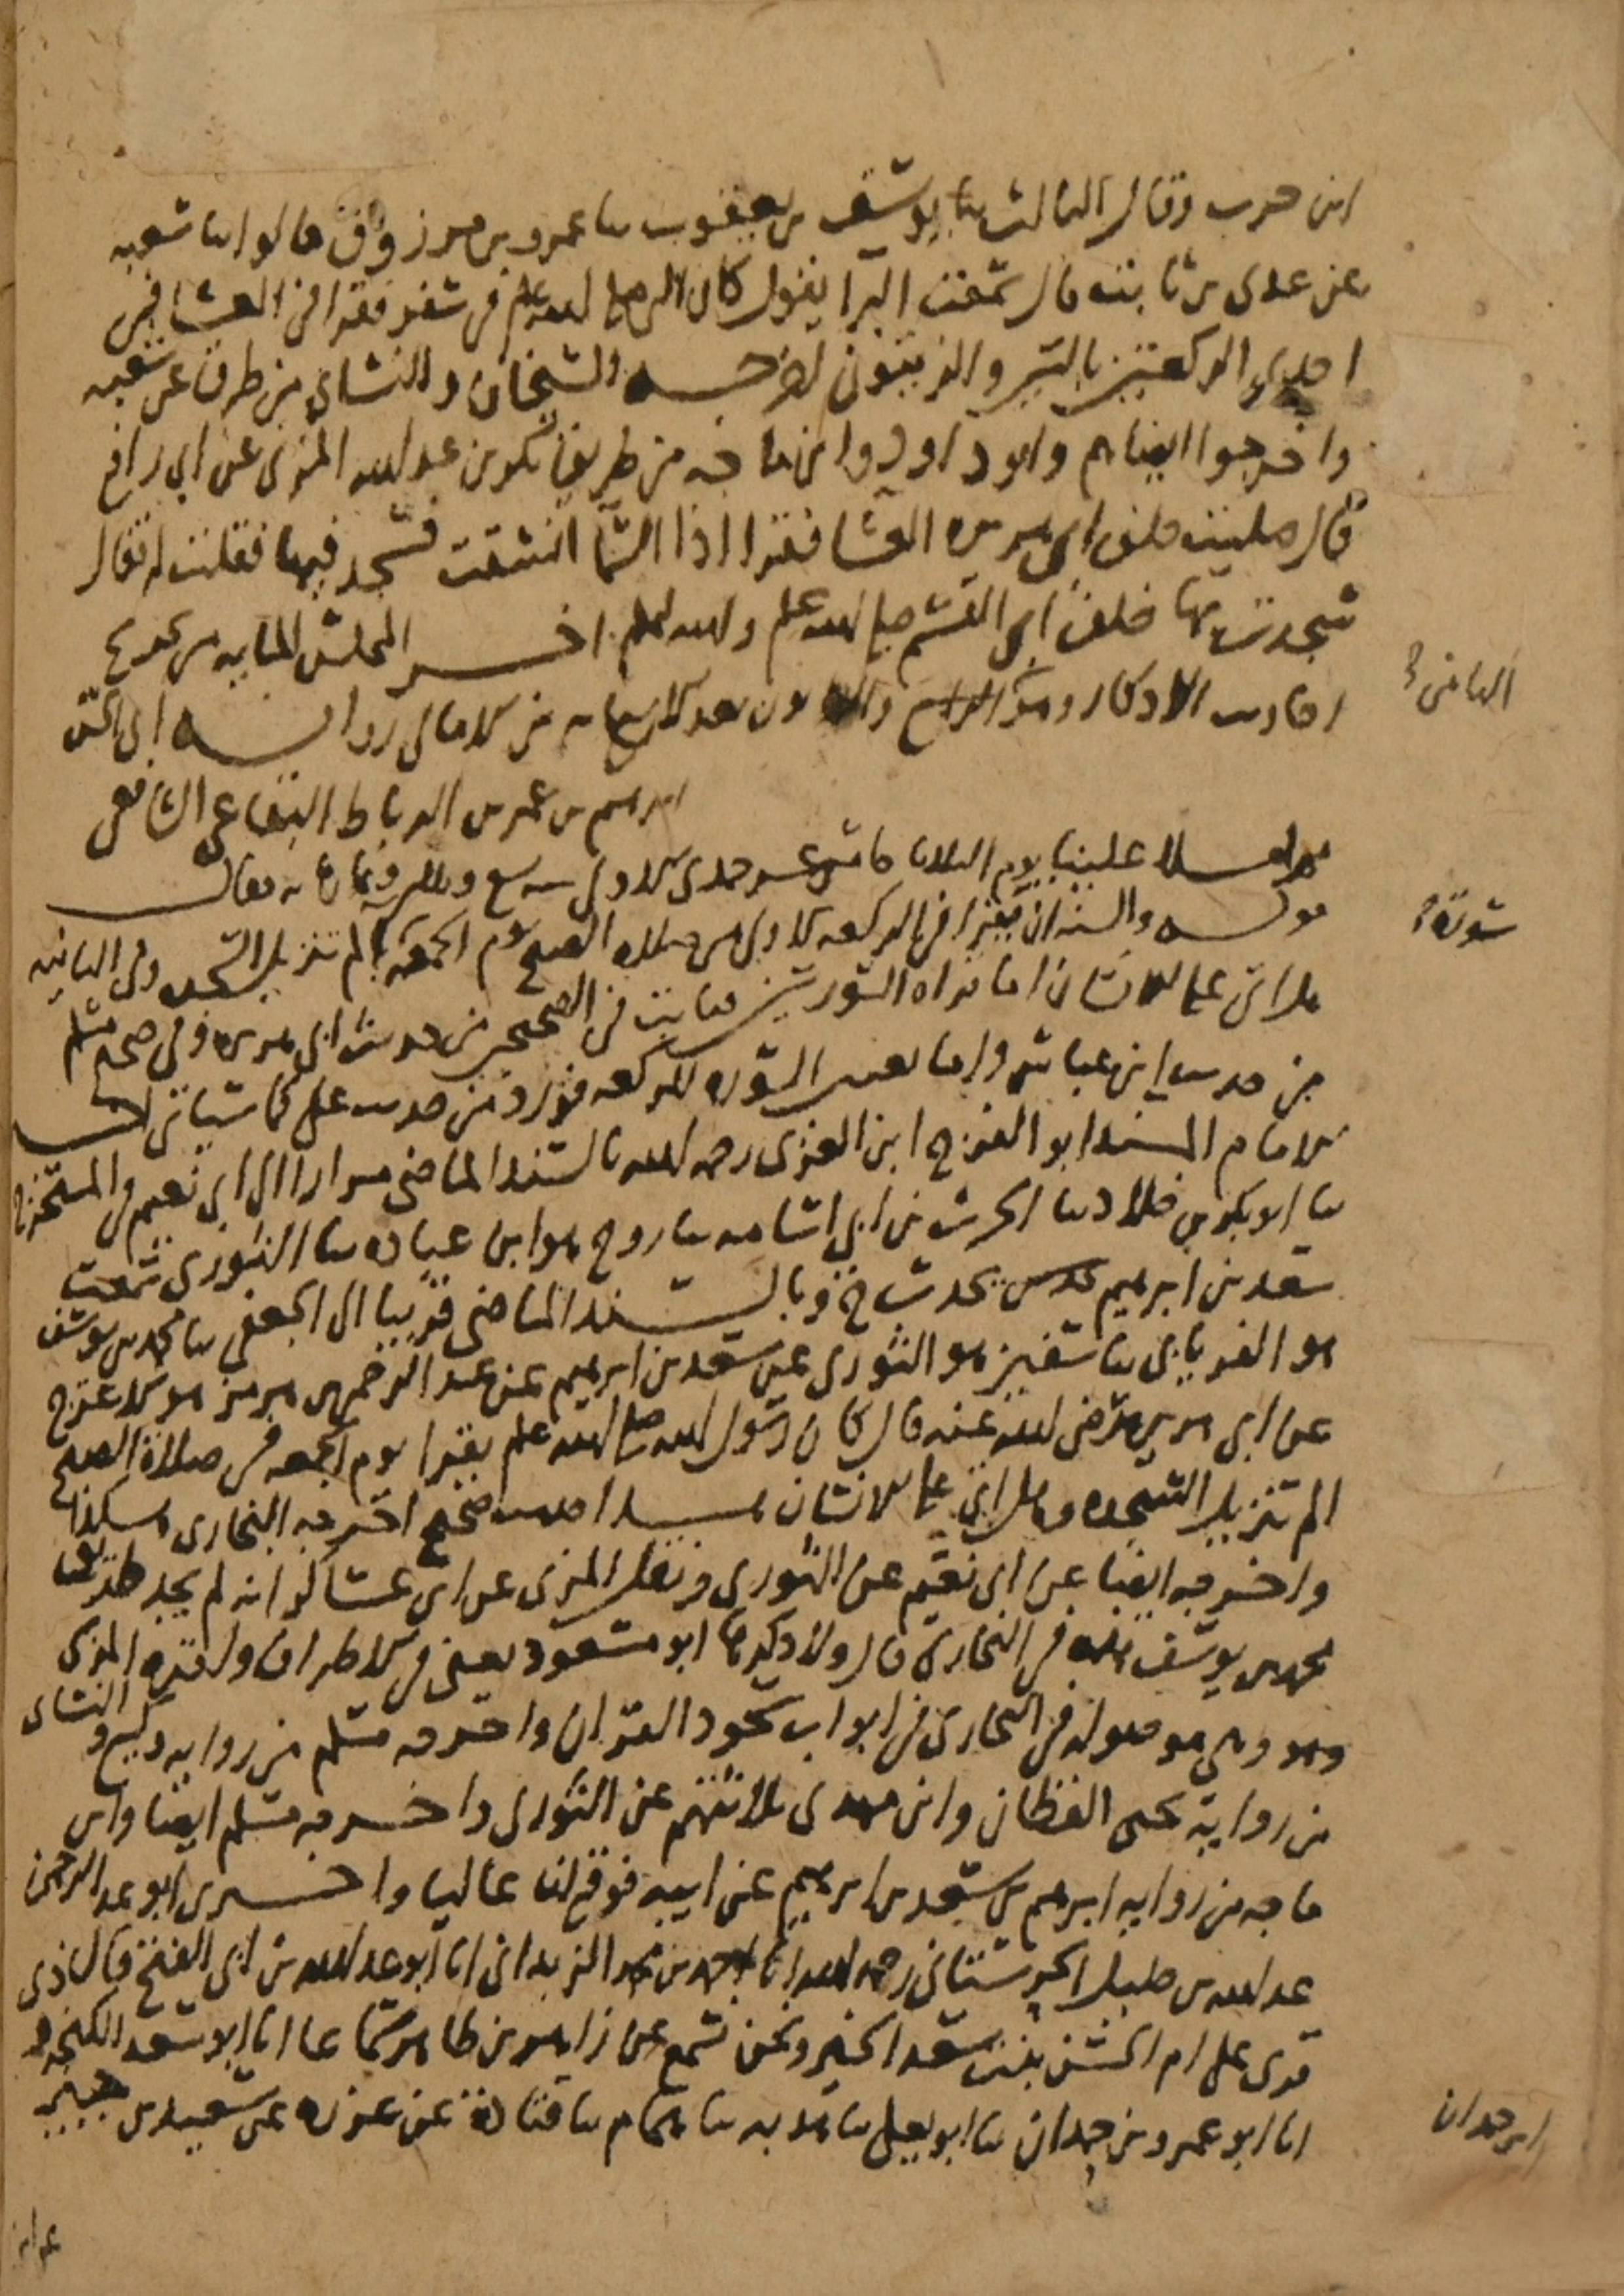 ابن حرب وقال الثالث ثنا يوسف بن يعقوب ثنا عمرو بن مرزوق قالوا ثنا شعبه
عن عدى بن ثابت قال سمعت البرا يقول كان النبي صلى الله عليه وسلم في سفر فقرا في العشا في
احدى الركعتين بالتين والزيتون اخرجه الشيخان والنساي من طرق عن شعبه
واخرجوا ايضا هم وابو داود وابن ماجه من طريق بكر بن عبد الله المزني عن ابي رافع
قال صليت خلف ابي هريره العشا فقرا اذا السما انشقت فسجد فيها فقلت له فقال
سجدت بها خلف ابي القسم صلى الله عليه وسلم والله اعلم اخر المجلس الثامن من تخريج
احاديث الاذكار وهو بعد الاربعمايه من الامالي روايه ابي الحسن
ابرهيم بن عمر بن الرباط البقاعي الشافعي
ثم املا علينا يوم الثلاثا خامس عشر جمدى الاولى سنه سبع وثلاثين وثمانمايه فقال
قوله والسنه ان يقرا في الركعه الاولى من صلاه الصبح يوم الجمعه الم تنزيل السجده وفي الثانيه
هل اتى على الانسان اما قراه السورتين فثابت في الصحيحين من حديث ابي هريره وفي صحيح مسلم
من حديث ابن عباس واما تعيين السوره للركعه فورد من حديث علي كما سياتي
الامام المسند ابو الفرج ابن الغزي رحمه الله بالسند الماضي مرارا الى ابي نعيم في المستخرج
ثنا ابو بكر بن خلاد ثنا الحرث بن ابي اسامه ثنا روح هو ابن عباده ثنا الثوري سمعت
سعد بن ابرهيم يحدث ح وبالسند الماضي قريبا الى الجعفي ثنا محمد بن يوسف
هو الفريابي ثنا سفين هو الثوري عن سعد بن ابرهيم عن عبد الرحمن بن هرمز هو الاعرج
عن ابي هريره رضي الله عنه قال كان رسول الله صلى الله عليه وسلم يقرا يوم الجمعه في صلاة الصبح
الم تنزيل السجده وهل اتى على الانسان هذا حديث صحيح اخرجه البخاري هكذا
واخرجه ايضا عن ابي نعيم عن الثوري ونقل المزي عن ابن عساكر انه لم يجد طريق
محمد بن يوسف هذه في البخاري قال ولا ذكرها ابو مسعود يعني في الاطراف ولقره المزي
وهو وهي موصوله في البخاري في ابواب سجود القران واخرجه مسلم من روايه وكيع والنساي
من رواية يحيى القطان وابن مهدي ثلاثتهم عن الثوري واخرجه مسلم ايضا وابن
ماجه من روايه ابرهيم بن سعد بن ابرهيم عن ابيه فوقع لنا عاليا واخبرني ابو عبد الرحمن
عبد الله بن خليل الحرستاني رحمه الله انا احمد بن محمد الزبداني انا ابو عبد الله بن ابي الفتح قال
قرى على ام الحسن بنت سعد الخير ونحن نسمع عن زاهر بن طاهر سماعا انا ابو سعد الكنجرودي
انا ابو عمرو بن حمدان ثنا ابو يعلى ثنا هدبه ثنا همام ثنا قتادة عن عزره عن سعيد بن جبير
الثامن
سورة
ابن حمدان
عن ابن